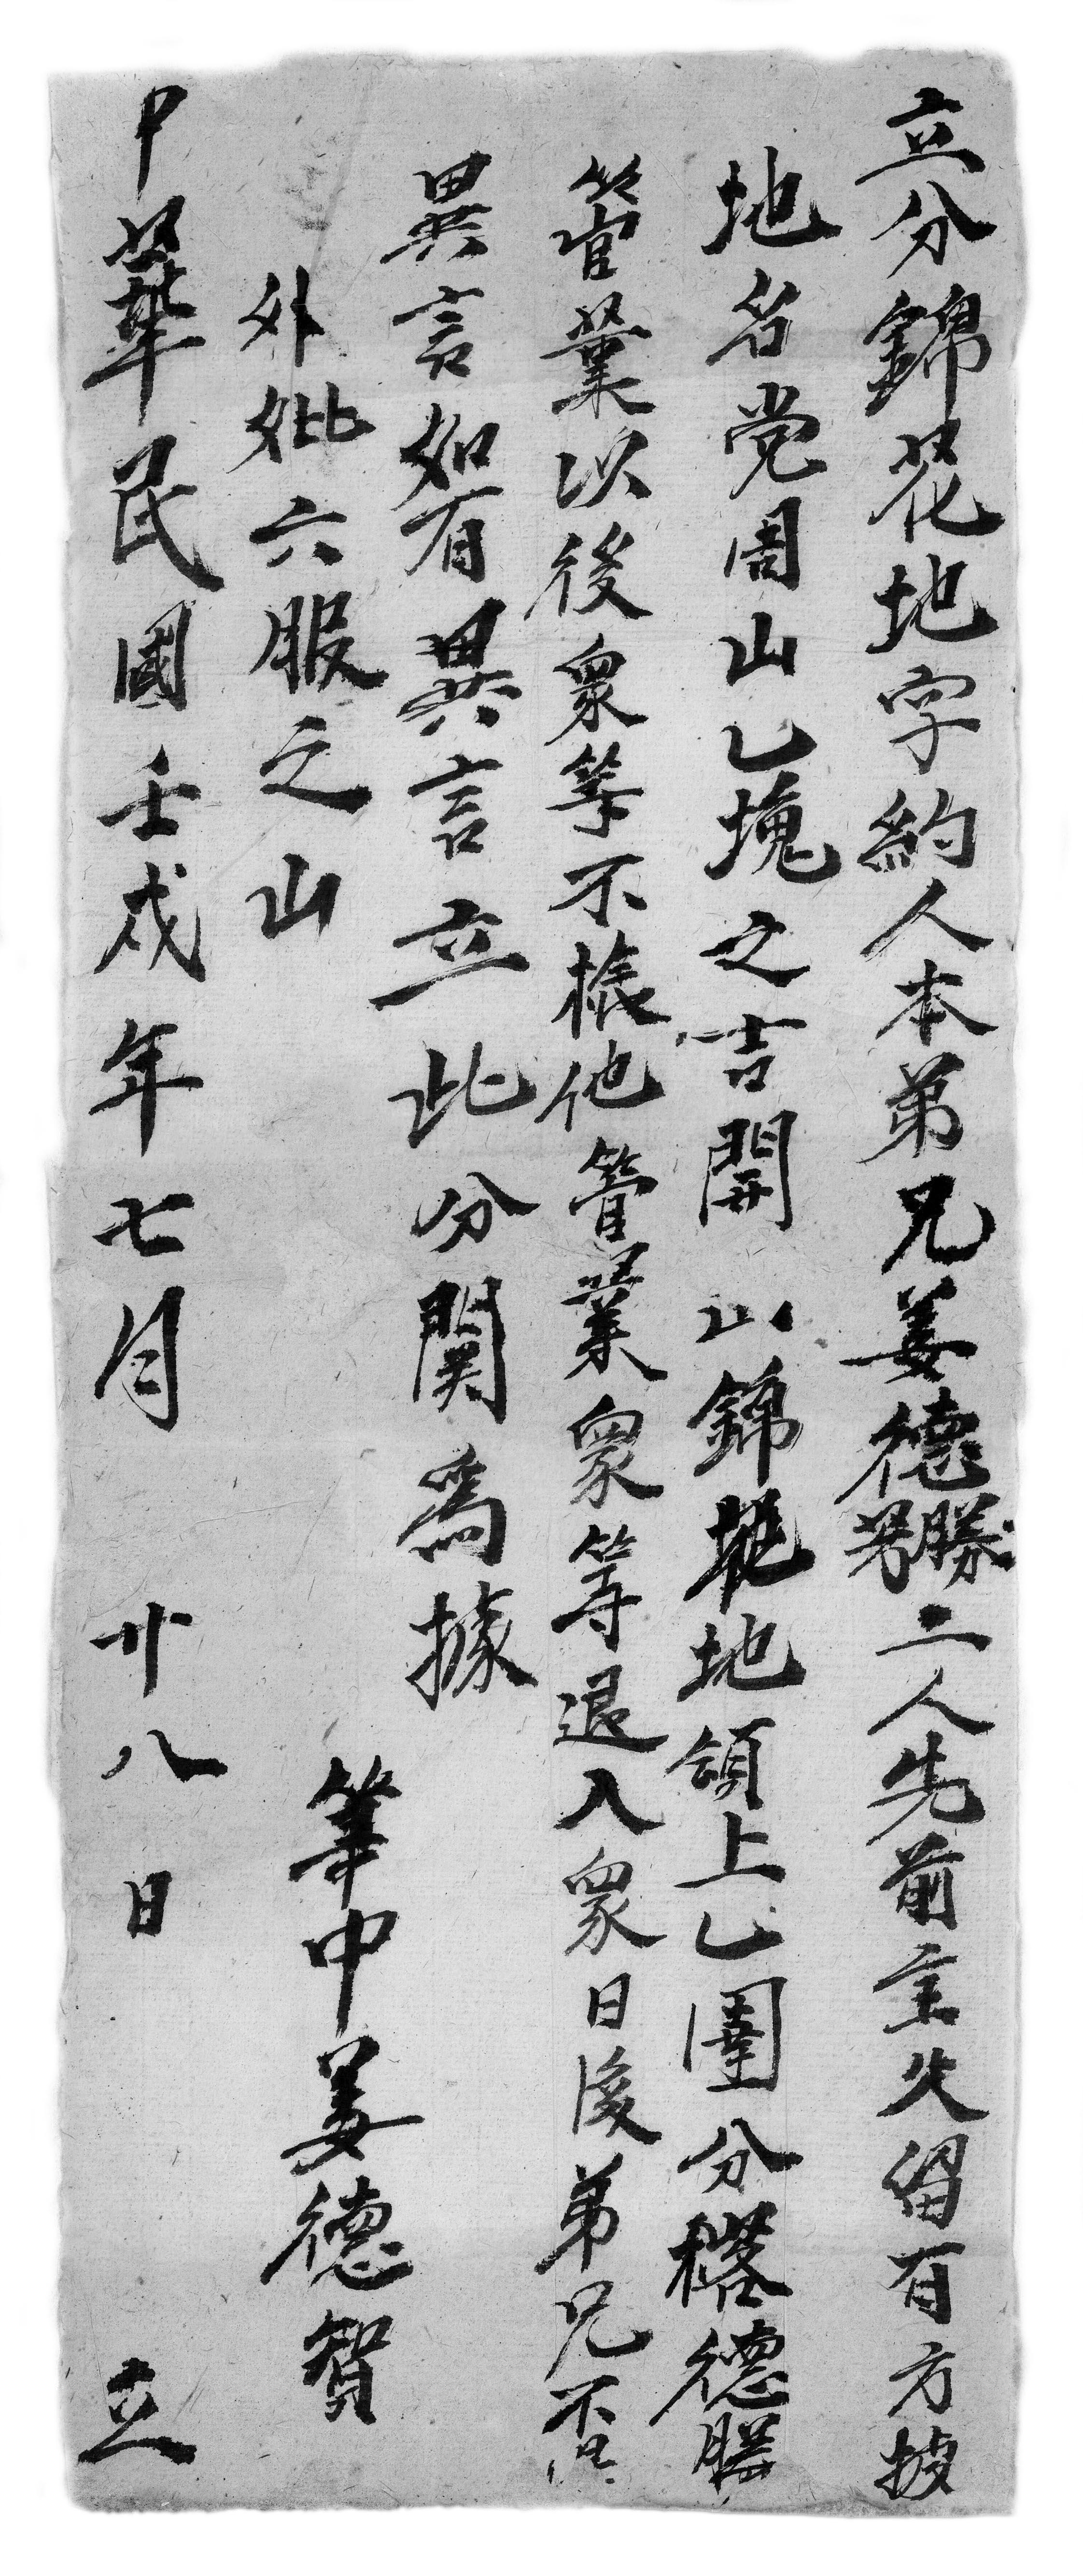 立分錦花地字約人本弟兄姜德勝男二人先前主火留有方披
地名党周山乚塊之吉開山錦花地領上乚團分楷德勝
管業以後眾等不樣他管業眾等退入眾日後弟兄不
異言如有異言立此分関為據
外妣六服之山
筆中姜德智
中華民國壬戌年七月廿八日立